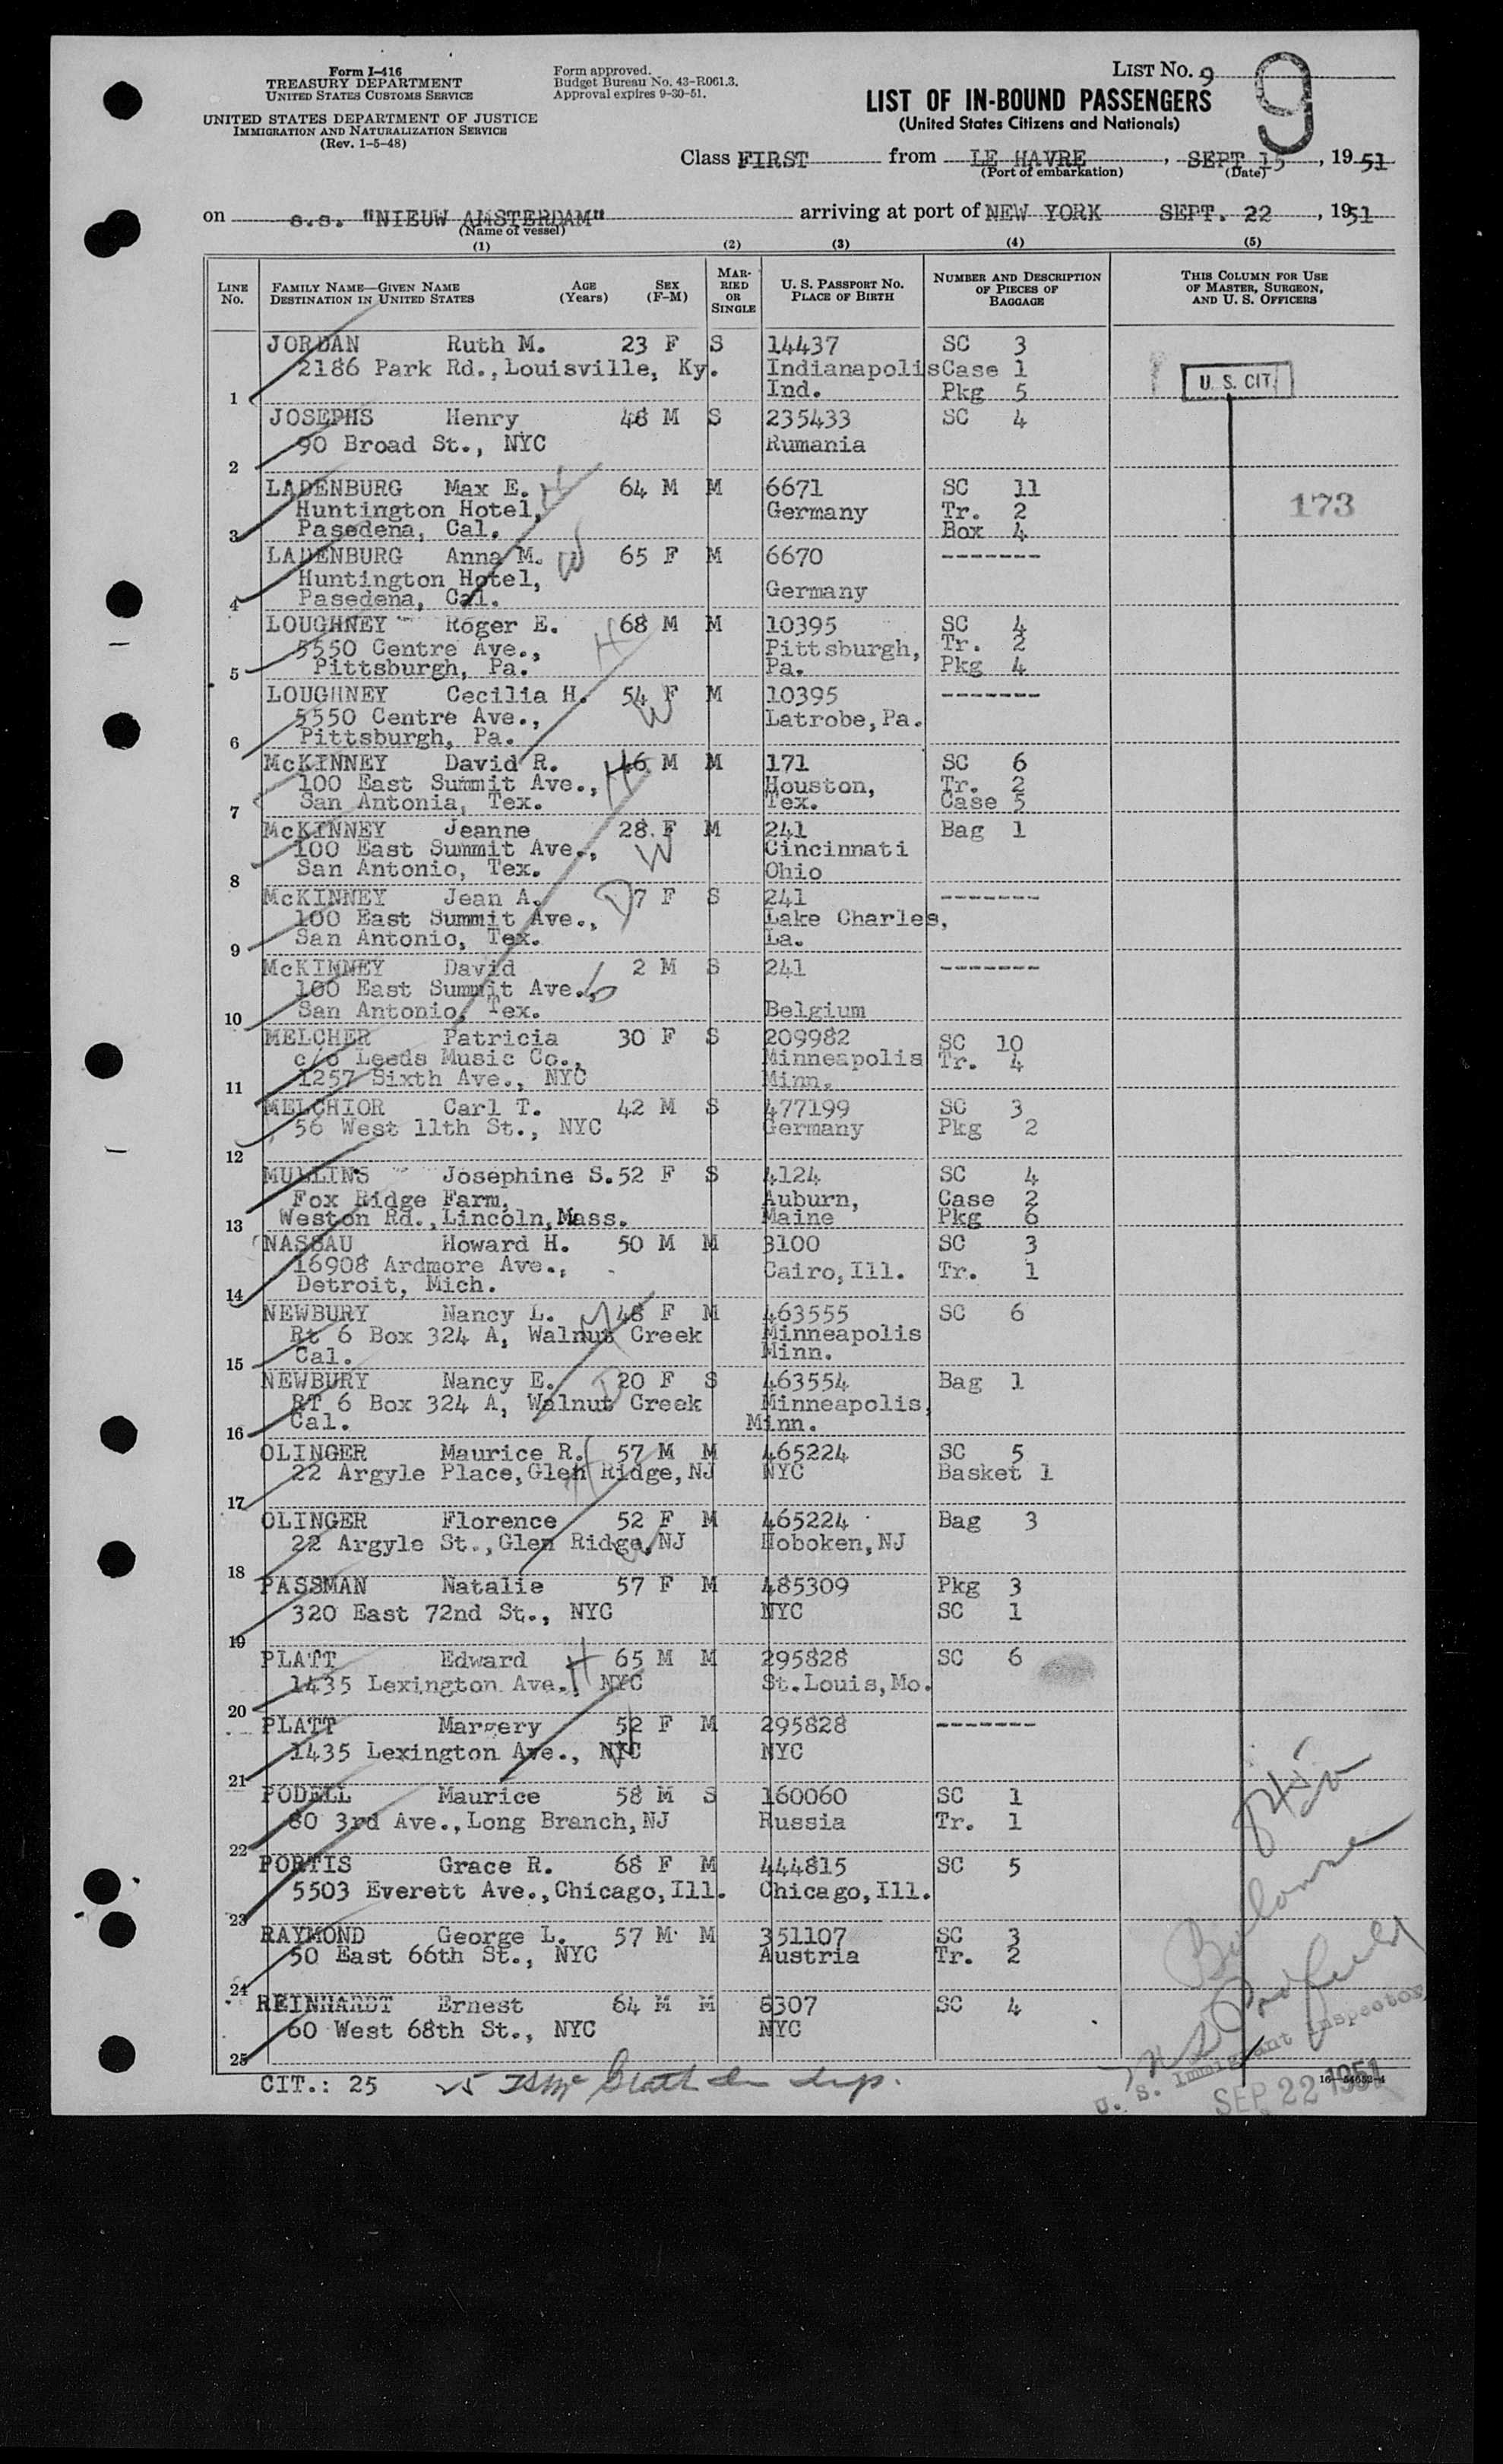 Form I-416
TREASURY DEPARTMENT
UNITED STATES CUSTOMS SERVICE
UNITED STATES DEPARTMENT OF JUSTICE
IMMIGRATION AND NATURALIZATION SERVICE
(Rev. 1-5-48)
Form approved.
Budget Bureau No. 43-R061.3.
Approval expires 9-30-51.
LIST NO. 9
9
LIST OF IN-BOUND PASSENGERS
(United States Citizens and Nationals)
Class FIRST from LE HAVRE, SEPT 15, 1951
(Port of embarkation) (Date)
on s.s. "NIEUW AMSTERDAM" arriving at port of NEW YORK SEPT. 22, 1951
(Name of vessel)
(1) (2) (3) (4) (5)
LINE No. FAMILY NAME—GIVEN NAME DESTINATION IN UNITED STATES AGE (Years) SEX (F-M) MARRIED OR SINGLE U. S. PASSPORT NO. PLACE OF BIRTH NUMBER AND DESCRIPTION OF PIECES OF BAGGAGE THIS COLUMN FOR USE OF MASTER, SURGEON, AND U. S. OFFICERS
JORDAN Ruth M. 23 F S 14437 SC 3
2186 Park Rd., Louisville, Ky. Indianapolis Case 1 U. S. CIT.
1 Ind. Pkg 5
JOSEPHS Henry 48 M S 235433 SC 4
90 Broad St., NYC Rumania
2
LADENBURG Max E. H 64 M M 6671 SC 11
Huntington Hotel, Germany Tr. 2 173
3 Pasedena, Cal. Box 4
LADENBURG Anna M. W 65 F M 6670 -------
Huntington Hotel, Germany
4 Pasedena, Cal.
LOUGHNEY Roger E. H 68 M M 10395 SC 4
5550 Centre Ave., Pittsburgh, Tr. 2
5 Pittsburgh, Pa. Pa. Pkg 4
LOUGHNEY Cecilia H. 54 F M 10395 -------
5550 Centre Ave., W Latrobe, Pa.
6 Pittsburgh, Pa.
McKINNEY David R. H 46 M M 171 SC 6
100 East Summit Ave., Houston, Tr. 2
7 San Antonia, Tex. Tex. Case 5
McKINNEY Jeanne 28 F M 241 Bag 1
100 East Summit Ave., W Cincinnati
8 San Antonio, Tex. Ohio
McKINNEY Jean A. D 7 F S 241 -------
100 East Summit Ave., Lake Charles,
9 San Antonio, Tex. La.
McKINNEY David 2 M S 241 -------
100 East Summit Ave.,
10 San Antonio, Tex. Belgium
MELCHER Patricia 30 F S 209982 SC 10
c/o Leeds Music Co., Minneapolis Tr. 4
11 1257 Sixth Ave., NYC Minn.
MELCHIOR Carl T. 42 M S 477199 SC 3
56 West 11th St., NYC Germany Pkg 2
12
MULLINS Josephine S. 52 F S 4124 SC 4
Fox Ridge Farm, Auburn, Case 2
13 Weston Rd., Lincoln, Mass. Maine Pkg 6
NASSAU Howard H. 50 M M 3100 SC 3
16908 Ardmore Ave., Cairo, Ill. Tr. 1
14 Detroit, Mich.
NEWBURY Nancy L. 48 F M 463555 SC 6
Rt 6 Box 324 A, Walnut Creek Minneapolis
15 Cal. Minn.
NEWBURY Nancy E. D 20 F S 463554 Bag 1
RT 6 Box 324 A, Walnut Creek Minneapolis,
16 Cal. Minn.
OLINGER Maurice R. 57 M M 465224 SC 5
22 Argyle Place, Glen Ridge, NJ NYC Basket 1
17 H
OLINGER Florence 52 F M 465224 Bag 3
22 Argyle St., Glen Ridge, NJ W Hoboken, NJ
18
PASSMAN Natalie 57 F M 485309 Pkg 3
320 East 72nd St., NYC NYC SC 1
19
PLATT Edward H 65 M M 295828 SC 6
1435 Lexington Ave., NYC St. Louis, Mo.
20
PLATT Margery 52 F M 295828 -------
1435 Lexington Ave., NYC NYC
21
PODELL Maurice 58 M S 160060 SC 1
80 3rd Ave., Long Branch, NJ Russia Tr. 1
22
PORTIS Grace R. 68 F M 444815 SC 5
5503 Everett Ave., Chicago, Ill. Chicago, Ill.
23
RAYMOND George L. 57 M M 351107 SC 3
50 East 66th St., NYC Austria Tr. 2
24
REINHARDT Ernest 64 M M 8307 SC 4
60 West 68th St., NYC NYC
25
CIT.: 25 25
U. S. Immigrant Inspector
SEP 22 1951
16-54652-4